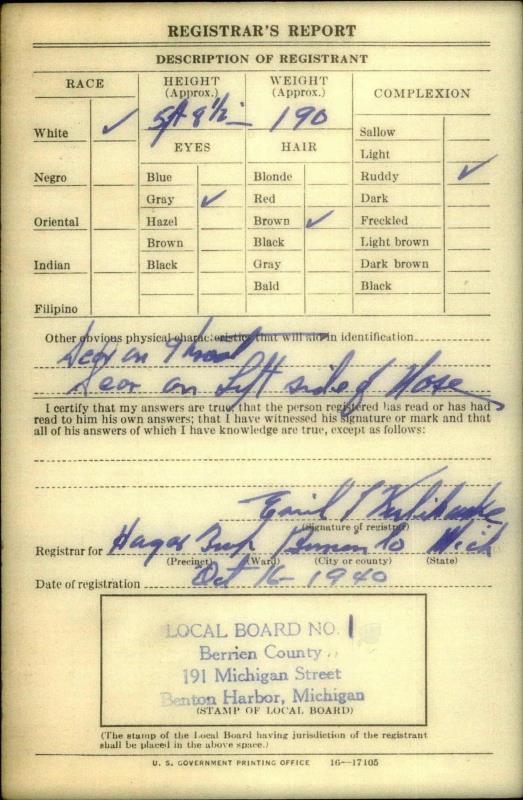 REGISTRAR'S REPORT
DESCRIPTION OF REGISTRANT
RACE
HEIGHT (Approx.)
WEIGHT (Approx.)
COMPLEXION
White ✓
5ft 8½
190
Sallow
EYES
HAIR
Light
Negro
Blue
Blonde
Ruddy ✓
Gray ✓
Red
Dark
Oriental
Hazel
Brown ✓
Freckled
Brown
Black
Light brown
Indian
Black
Gray
Dark brown
Bald
Black
Filipino
Other obvious physical characteristics that will aid in identification
Scar on Throat
Scar on Left side of Nose
I certify that my answers are true; that the person registered has read or has had
read to him his own answers; that I have witnessed his signature or mark and that
all of his answers of which I have knowledge are true, except as follows:
Emil
(Signature of registrar)
Registrar for Hagar Twp Berrien Co Mich
(Precinct) (Ward) (City or county) (State)
Date of registration Oct 16 - 1940
LOCAL BOARD NO. 1
Berrien County
191 Michigan Street
Benton Harbor, Michigan
(STAMP OF LOCAL BOARD)
(The stamp of the Local Board having jurisdiction of the registrant
shall be placed in the above space.)
U. S. GOVERNMENT PRINTING OFFICE 16—17105